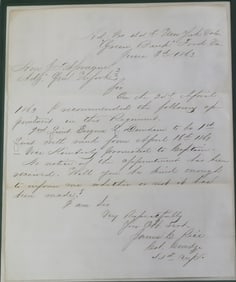 Hd. Qrs 44th New York Vols
June 8th 1863
Hon. Jno. Sprague
Adjt Genl
Sir
On the 25th April
1863 I recommended the following ap
pointment in this Regiment.
2nd Lieut Eugene L. Dunham to be 1st
Lieut with rank from April 18th 1863
Vice Promoted to Captain.
No notice of the appointment has been
received. Will you be kind enough
to inform me whether or not it has
been made?
I am Sir
Very Respectfully
Your Obt Servt
James C. Rice
Col. Comdg
44th N.Y.